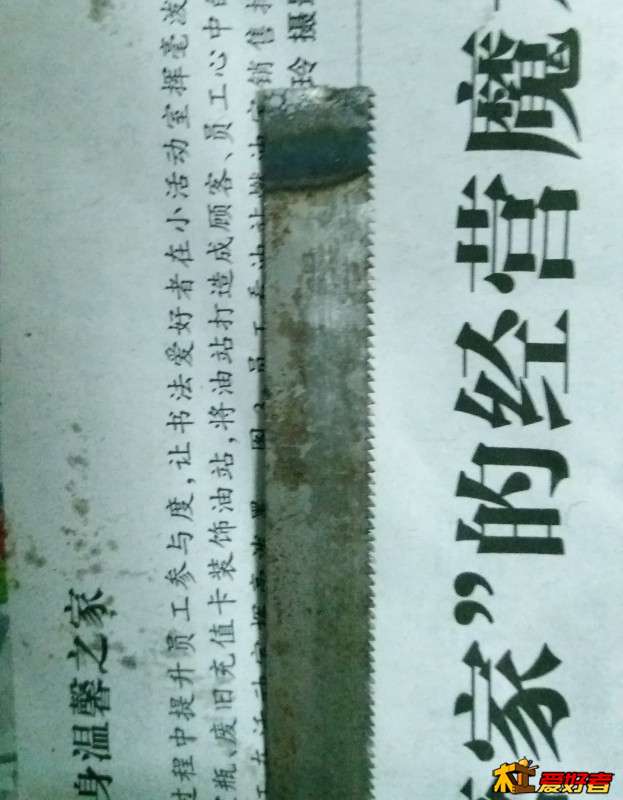 身温馨之家
过程中提升员工参与度,让书法爱好者在小活动室挥毫泼
瓶、废旧充值卡装饰油站,将油站打造成顾客、员工心中的
工在活动室挥毫
销售
玲 摄
家”的经营魔
木工爱好者